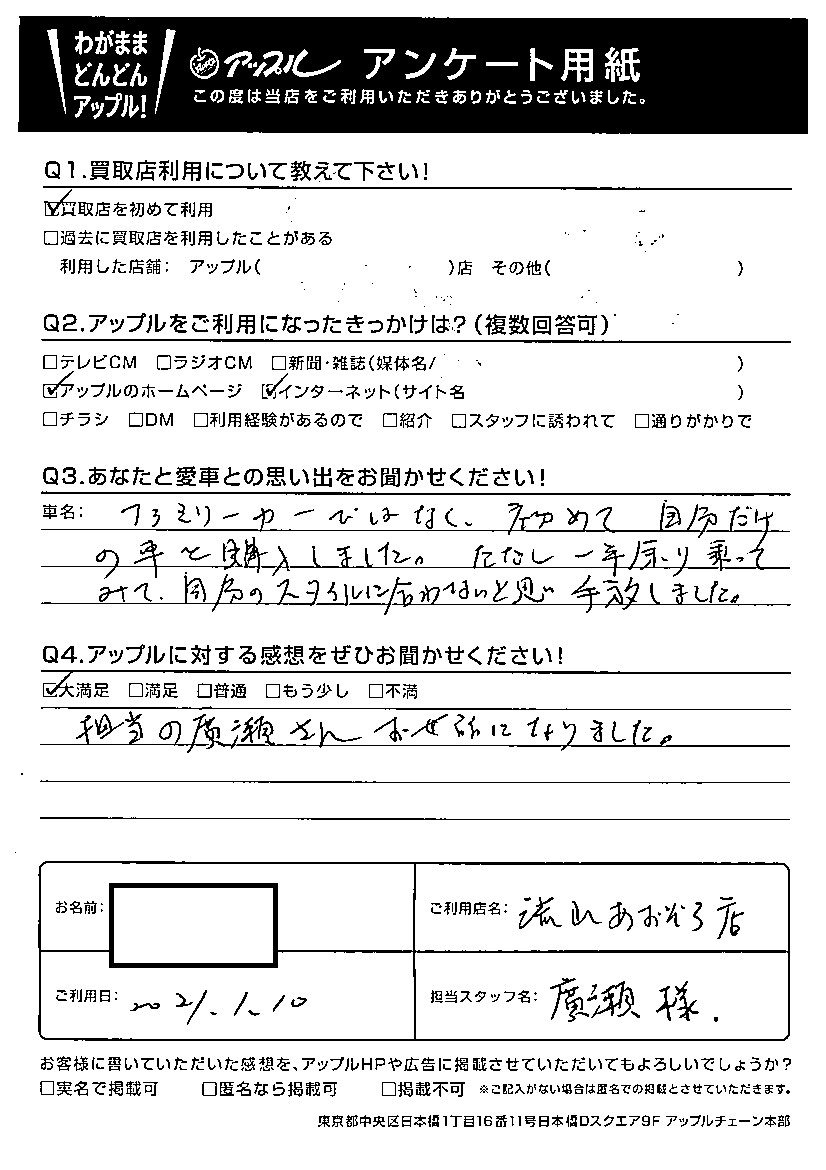 わがまま
どんどん
アップル!
アップル アンケート用紙
この度は当店をご利用いただきありがとうございました。
Q1.買取店利用について教えて下さい!
☑買取店を初めて利用
□過去に買取店を利用したことがある
利用した店舗: アップル( )店 その他( )
Q2.アップルをご利用になったきっかけは?(複数回答可)
□テレビCM □ラジオCM □新聞・雑誌(媒体名/ )
☑アップルのホームページ ☑インターネット(サイト名 )
□チラシ □DM □利用経験があるので □紹介 □スタッフに誘われて □通りがかりで
Q3.あなたと愛車との思い出をお聞かせください!
車名: ファミリーカーではなく、初めて自分だけ
の車を購入しました。ただし一年余り乗って
みて、自分のスタイルに合わないと思い手放しました。
Q4.アップルに対する感想をぜひお聞かせください!
☑大満足 □満足 □普通 □もう少し □不満
担当の廣瀬さんお世話になりました。
お名前:
ご利用店名: 流山あおぞら店
ご利用日: 2021.1.10
担当スタッフ名: 廣瀬 様.
お客様に書いていただいた感想を、アップルHPや広告に掲載させていただいてもよろしいでしょうか?
□実名で掲載可 □匿名なら掲載可 □掲載不可 ※ご記入がない場合は匿名での掲載とさせていただきます。
東京都中央区日本橋1丁目16番11号日本橋Dスクエア9F アップルチェーン本部